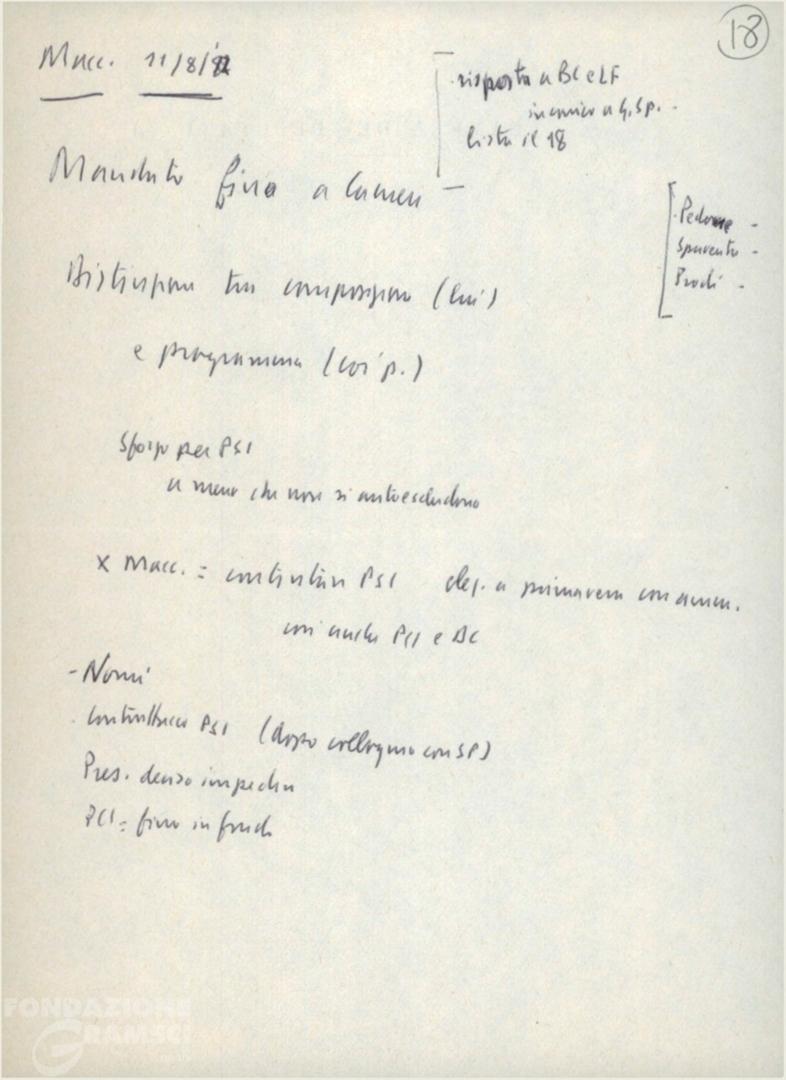 18
Macc. 11/8/82
risposta a BC e LF
incarico a G. Sp. -
lista il 18
Mandato fino a Camera -
Pedone -
Spaventa -
Prodi -
Distinzione tra composizione (lui)
e programma (coi p.)
Sforzo per PSI
a meno che non si autoescludono
x Macc. = PSI a primavera con
con anche PCI e DC
- Nomi
PSI (dopo colloquio con SP)
Pres. deciso
PCI = fino in fondo
FONDAZIONE
GRAMSCI